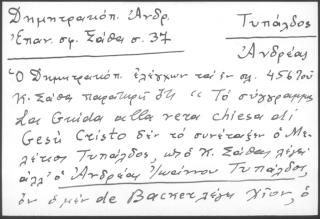 Δημητρακόπ. Ἀνδρ.
Ἐπαν. σφ. Σάθα σ. 37
Τυπάλδος
Ἀνδρέας
Ὁ Δημητρακόπ. ἐλέγχων καὶ ἐν σελ. 456 τοῦ
Κ. Σάθα παρατηρεῖ ὅτι "Τὸ σύγγραμμα
La Guida alla vera chiesa di
Gesù Cristo δὲν τὸ συνέταξεν ὁ Με-
λέτιος Τυπάλδος, ὡς ὁ Κ. Σάθας λέγει
ἀλλ' ὁ Ἀνδρέας Ἰωάννου Τυπάλδος,
ὃν ὁ μὲν de Backer λέγει Χῖον, ὁ